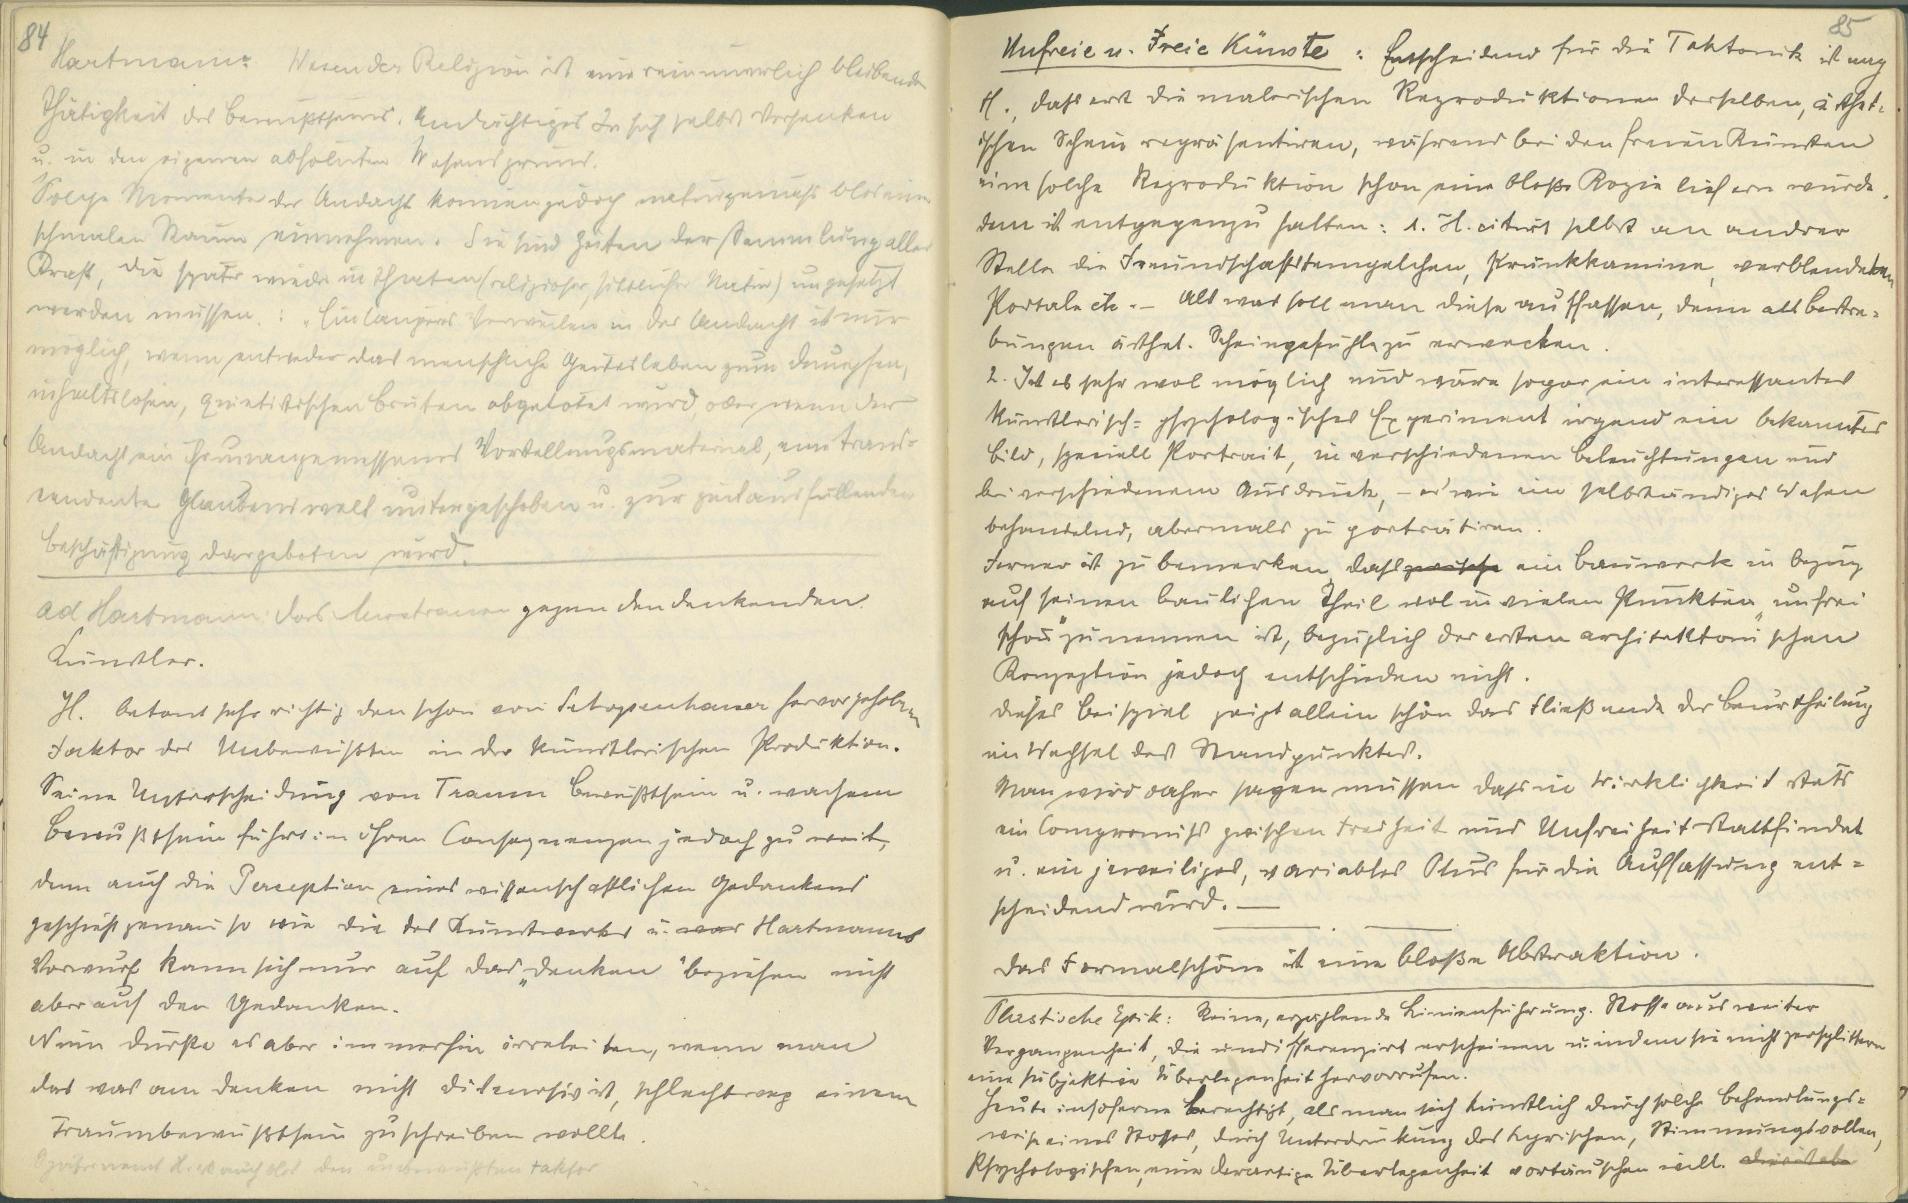 84
Hartmann: Wesen der Religion ist eine rein innerlich bleibende
Thätigkeit des Bewußtseins. Andächtiges In sich selbst Versenken
u. in den eigenen absoluten Wesensgrund.
Solche Momente der Andacht können jedoch naturgemäß blos einen
schmalen Raum einnehmen. Sie sind Zeiten der Sammlung aller
Kraft, die später wieder in Thaten (religiöser, sittlicher Natur) umgesetzt
werden müssen.: „Ein längeres Verweilen in der Andacht ist nur
möglich, wenn entweder das menschliche Geistesleben zum dumpfen,
inhaltslosen, quietistischen Brüten abgetötet wird, oder wenn der
Andacht ein ihr unangemessenes Vorstellungsmaterial, eine trans=
cendente Glaubenswelt untergeschoben u. zur zeitausfüllenden
Beschäftigung dargeboten wird.
ad Hartmann: Das Misstrauen gegen den denkenden
Künstler.
H. betont sehr richtig den schon von Schopenhauer hervorgehobenen
Faktor des Unbewußten in der künstlerischen Produktion.
Seine Unterscheidung von Traum Bewußtsein u. wachem
Bewußtsein führt in ihren Consequenzen jedoch zu weit,
denn auch die Perception eines wissenschaftlichen Gedankens
geschieht genau so wie die des Kunstwerks u. Hartmanns
Vorwurf kann sich nur auf das „Denken" beziehen nicht
aber auf den Gedanken.
Nun dürfte es aber immerhin irreleiten, wenn man
das was am Denken nicht diskursiv ist, schlechtweg einem
Traumbewußtsein zuschreiben wollte.
Später nennt H. es auch blos den unbewußten Faktor
85
Unfreie u. Freie Künste: Entscheidend für die Tektonik ist nach
H., daß erst die malerischen Reproduktionen derselben, ästhet=
ischen Schein repräsentiren, während bei den freien Künsten
eine solche Reproduktion schon eine bloße Kopie liefern würde.
dem ist entgegenzuhalten: 1. H. citirt selbst an andrer
Stelle die Freundschaftstempelchen, Prunkkamine, verblendeten
Portale etc. – Als was soll man diese auffassen, denn als Bestre=
bungen ästhet. Scheingefühle zu erwecken.
2. Ist es sehr wol möglich und wäre sogar ein interessantes
künstlerisch=psychologisches Experiment irgend ein bekanntes
Bild, speciell Portrait, in verschiedenen Beleuchtungen und
bei verschiedenem Ausdruck, – es wie ein selbständiges Wesen
behandelnd, abermals zu porträtiren.
Ferner ist zu bemerken, daß ein Bauwerk in bezug
auf seinen baulichen Theil wol in vielen Punkten „unfrei
schön" zu nennen ist, bezüglich der ersten architektonischen
Konzeption jedoch entschieden nicht.
Dieses Beispiel zeigt allein schon das Fließende der Beurtheilung
im Wechsel des Standpunktes.
Man wird daher sagen müssen daß in Wirklichkeit stets
ein Compromiß zwischen Freiheit und Unfreiheit stattfindet
u. ein jeweiliges, variables Plus für die Auffassung ent=
scheidend wird. —
Das Formalschöne ist eine bloße Abstraktion.
Plastische Epik: Reine, erzählende Linienführung. Stoffe aus weiter
Vergangenheit, die undifferenzirt erscheinen u. indem sie nicht zersplittern
eine subjektive Überlegenheit hervorrufen.
Heute insoferne berechtigt, als man sich künstlich durch solche Behandlungs=
weise eines Stoffes, durch Unterdrückung des Lyrischen, Stimmungsvollen,
Psychologischen, eine derartige Überlegenheit vortäuschen will.